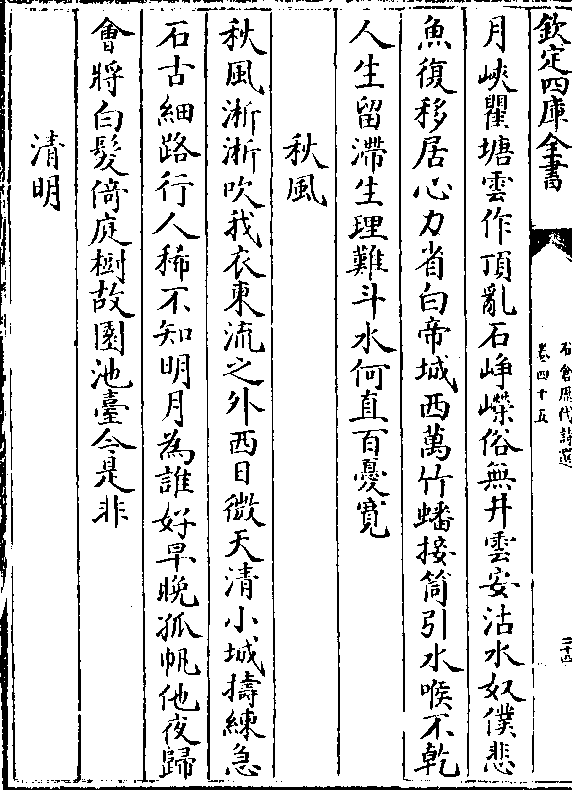 欽定四庫全書
石倉歷代詩選
卷四十五
二十四
月峽瞿塘雲作頂亂石崢嶸俗無井雲安沽水奴僕悲
魚復移居心力省白帝城西萬竹蟠接筒引水喉不乾
人生留滯生理難斗水何直百憂寛
秋風
秋風淅淅吹我衣東流之外西日微天清小城擣練急
石古細路行人稀不知明月為誰好早晚孤帆他夜歸
會將白髮倚庭樹故園池臺今是非
清明